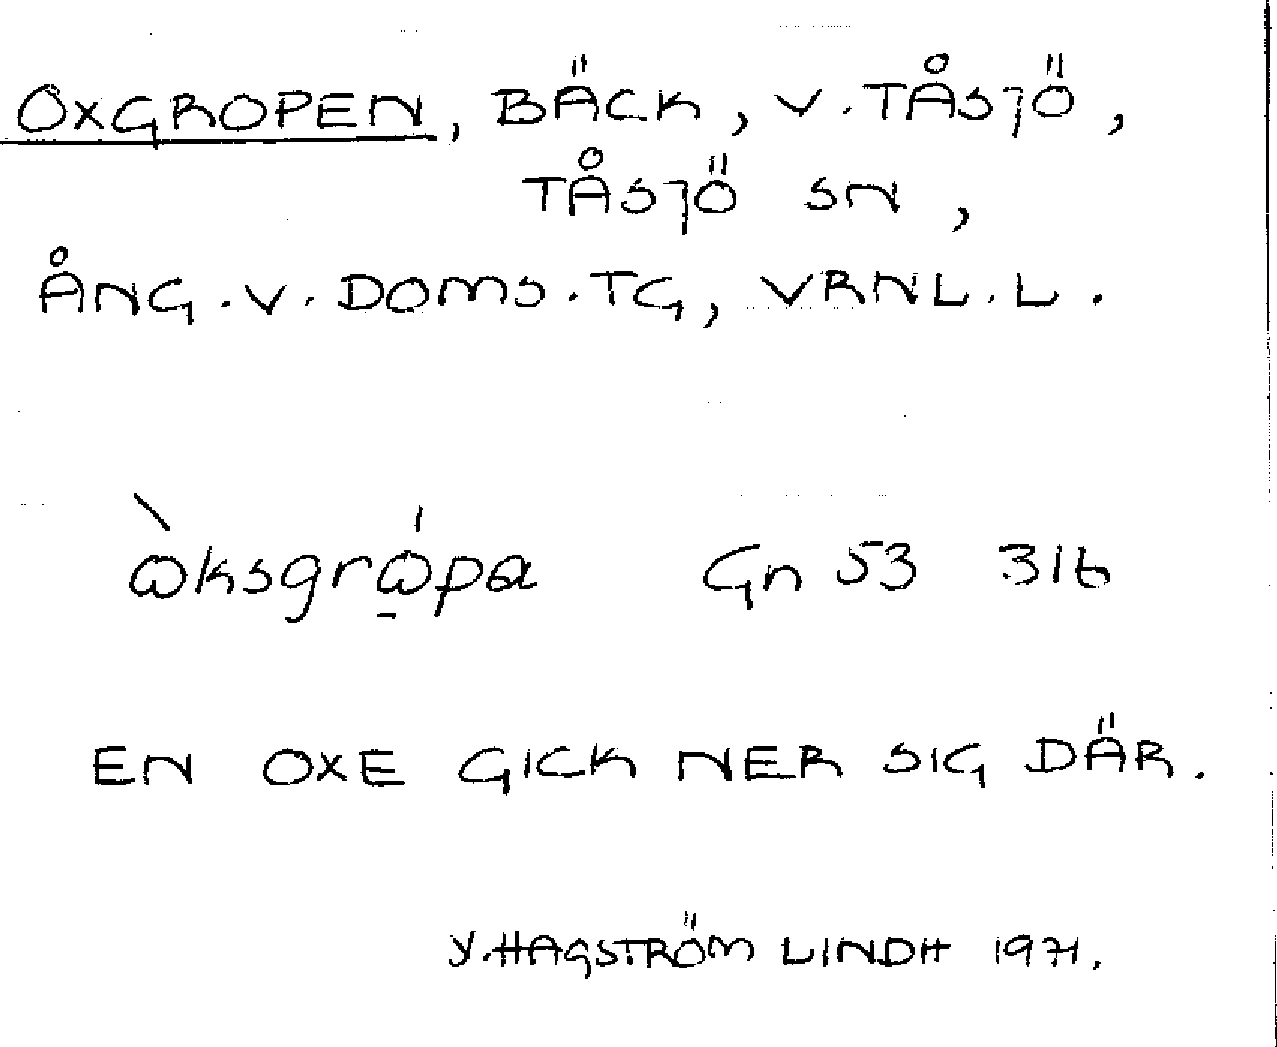 OXGROPEN, BÄCK, V. TÅSJÖ,
TÅSJÖ SN,
ÅNG. V. DOMS. TG, VRNL. L.
ὼksgrώ̱pa Gn 53 31b
EN OXE GICK NER SIG DÄR.
Y. HAGSTRÖM LINDH 1971.